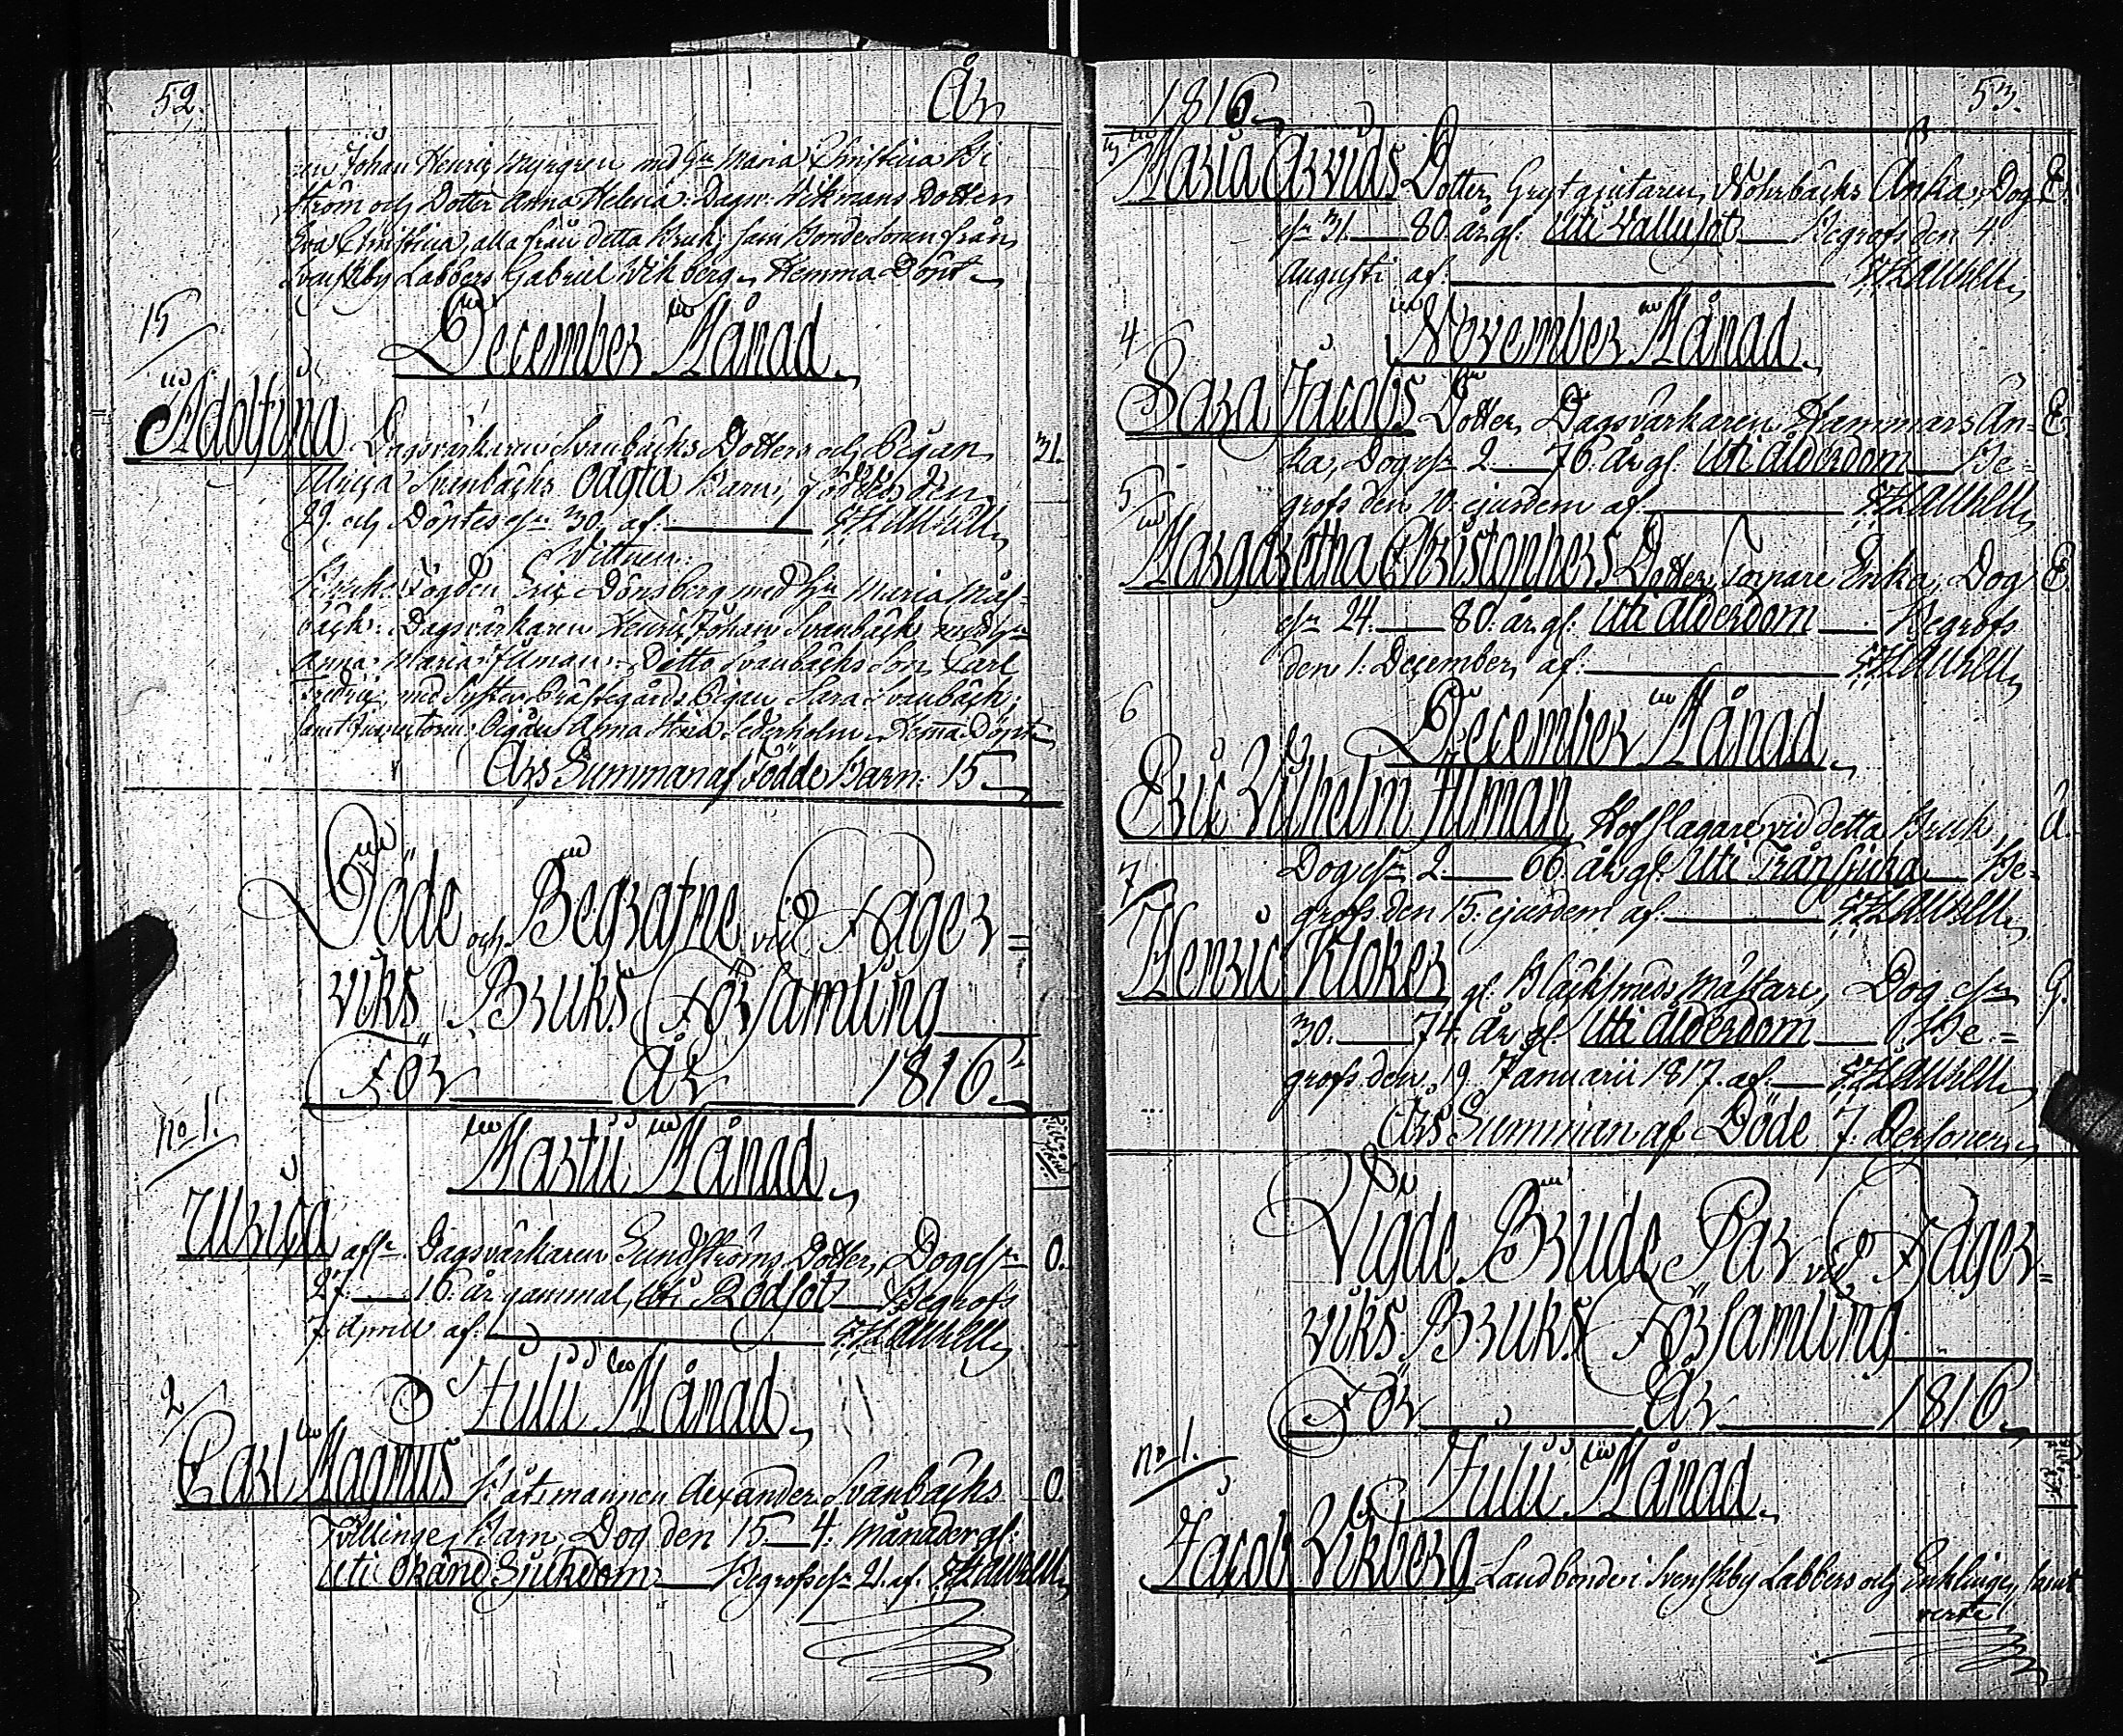 52. År
Johan Henric Myrgren med Hu Maria Christina
ström och Dotter Anna Helena. Dagsv: Wikmans Dotter
Eva Christina, alla från detta Bruk; samt Bonde Sonen från
Svenskby Labbers Gabriel Wikberg. Hemma Döpt
15
December Månad
Adolfina Dagsvärkaren Svanbäcks Dotters och Pigan 31.
Ulrica Svanbäcks oägta Barn; föddes den
29. och Döptes 30. af
Wittnen:
Bruks Fogden Eric Dönsberg med Hu Maria
bäck. Dagsvärkaren Henric Johan Svanbäck med
Anna Maria Ilman. Ditto Svanbäcks Son Carl
Fredric, med Syster Prästegårds Pigan Sara Svanbäck;
samt Pigan Anna Stina Sederholm. Hemma Döpt
Års Summan af Födde Barn: 15
Döde och Begrafne vid Fager=
viks Bruks Församling
För År 1816.
No 1.
Martii Månad
Ulrica Dagsvärkaren Sundströms Dotter, Dog O.
27. 16. år gammal, Uti Rödsot Begrofs
7. Aprill af:
2
Julii Månad
Carl Magnus Båtsmannen Alexander Svanbäcks O.
Tvillinge Barn, Dog den 15. 4. månader gl:
Uti okänd Sjukdom Begrofs 21. af.
1816. 53.
3
Maria Arvids Dotter, Grytgjutaren Nohrbäcks Änka, Dog E.
31. 80. år gl. Uti Vallusot Begrofs den 4.
Augusti af:
4
November Månad
Sara Jacobs Dotter, Dagsvärkaren Hammars Än= E.
ka, Dog 2. 76. år gl. Uti Ålderdom Be=
grofs den 10. ejusdem af
5
Margaretha Christophers Dotter, Torpare Enka, Dog E.
24. 80. år gl: Uti Ålderdom Begrofs
den 1. December af:
6
December Månad
Eric Wilhelm Ilman, Hofslagare vid detta Bruk, Å.
Dog 2. 66. år gl. Uti Trånsjuka Be=
grofs den 15. ejusdem af:
7
Henric Kloker gl. Klacksmeds Mästare, Dog G.
30. 74. år gl. Uti Ålderdom Be=
grofs den 19 Januarii 1817. af.
Års Summan af Döde 7. Personer
Vigde Brude Par vid Fager=
viks Bruks Församling
För År 1816.
No 1.
Julii Månad
Jacob Vikberg Landbonde i Svenskby Labbers och Enkling, samt
verte